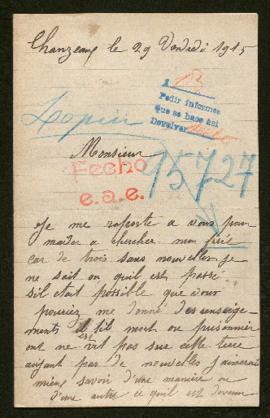 Chanzeaux le 29 Vendredi 1915
13
Pedir informes
que se hace asi
Devolver
Copier
Monsieur
Fecho
e.a.e.
15727
Je me raporte a vous pour
maider a chercher mon frère
car de trois sans nouvelles je
ne sait ou quil est passé
Sil etait possible que vous
pourriez me donné des renseigne
ments est sil mort ou prisonnier
ont ne vit pas sur cette terre
ayant pas de nouvelles j'aimerais
mieux savoir d'une manière ou
d'une autre ce quil est devenu